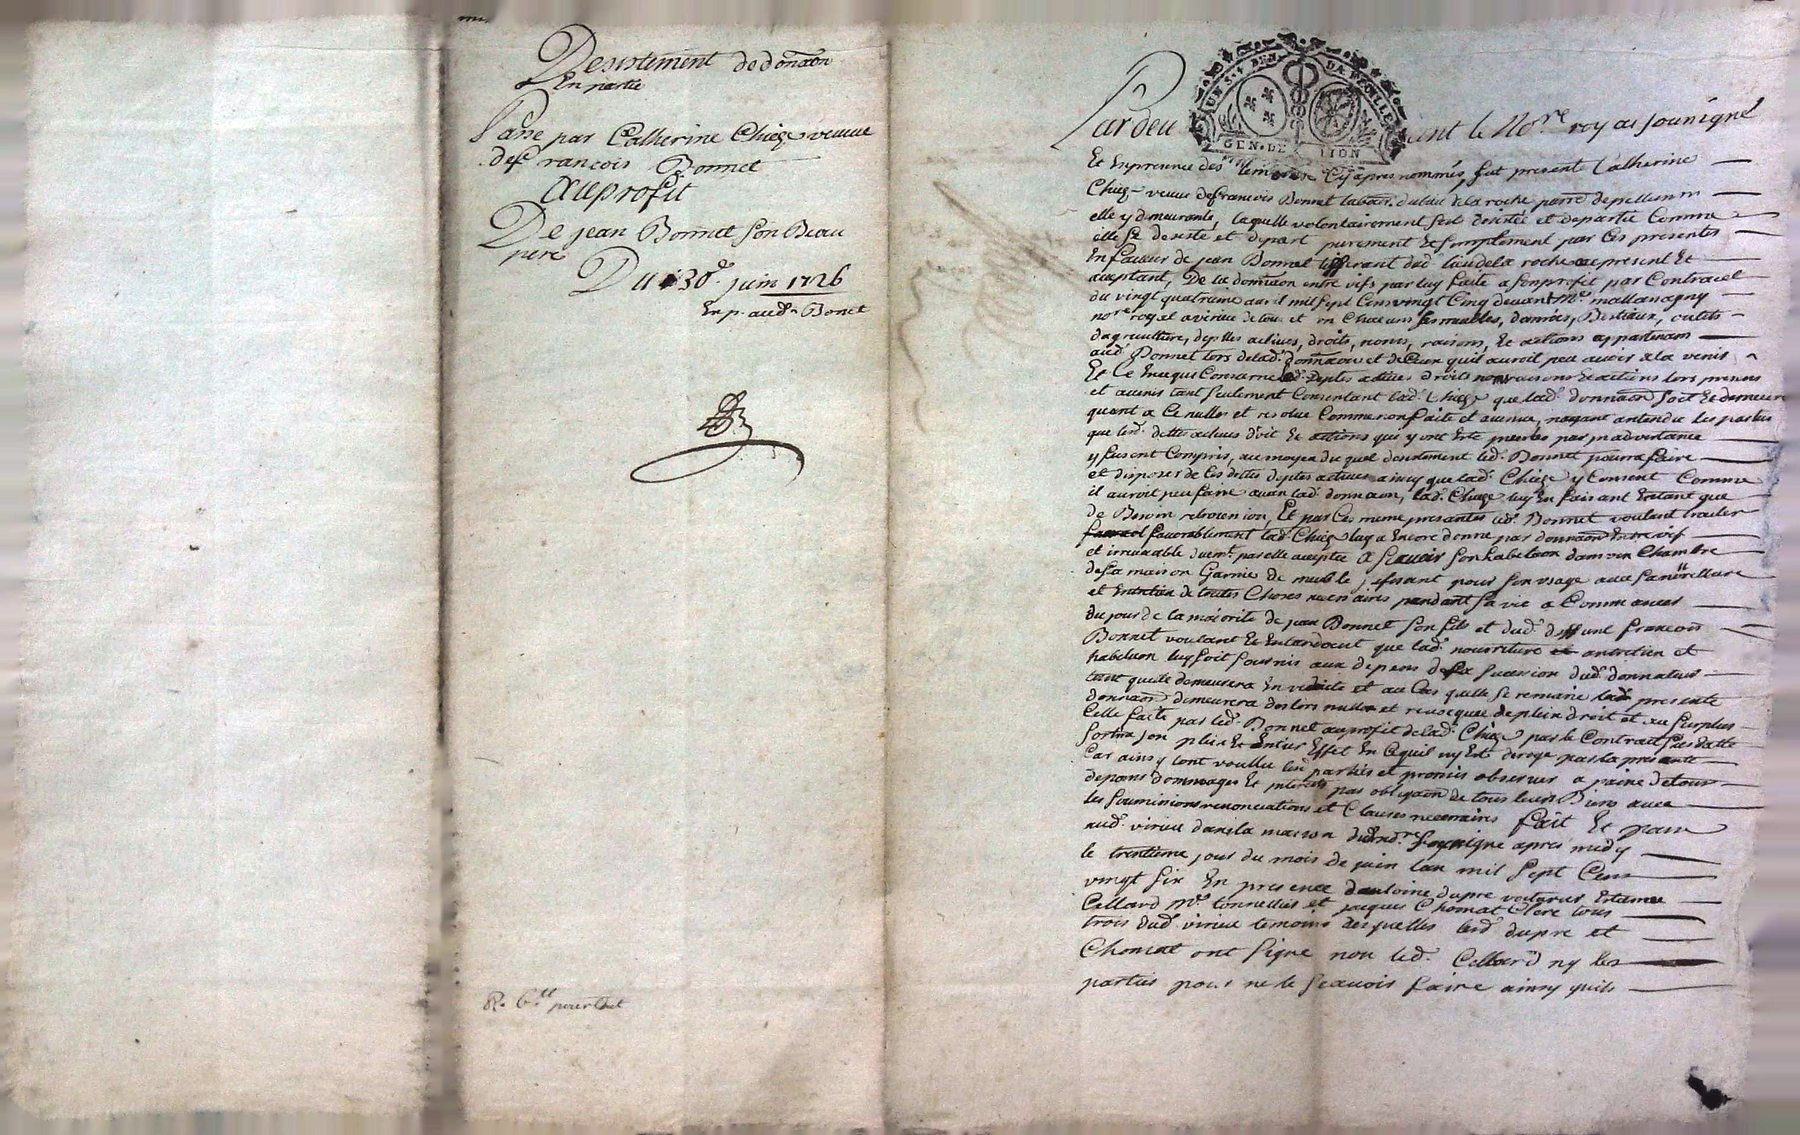 Desistement de donãon
En partie
Passé par Catherine Chieze veuve
de françois Bonnet
Au profit
De jean Bonnet son Beau
pere
Du 30e. juin 1726
Exp. aud. Bonet
R. 6.tt pour
GEN. DE LION
Pardevant le No.re royal soussigné
Et En presence des temoins Cy apres nommés, fut presente Catherine
Chieze veuve de françois Bonnet labour. du lieu de la roche parr.e de pellussin
elle y demeurante, laquelle volontairement s'est desistée et departie Comme
elle se desiste et depart purement et simplement par Ces presentes
En faveur de jean Bonnet dud. lieu de la roche present Et
aceptant, De la donnaon entre vifs par luy faite a son profit par Contract
du vingt quatrieme avril mil sept Cens vingt Cinq devant Me. mallassagny
no.re royal a virieu de tous et un Chacuns ses meubles, danrées, Bestiaux, outils
dagriculture, deptes actives, droits, noms, raisons, Et actions appartenans
aud. Bonnet lors de lad. donnaon et de Ceux quil auroit peu avoir a la venir
Et Ce En Ce qui Concerne lesd. deptes actives droits noms raisons Et actions lors presens
et avenir tant seulement Consentant lad. Chieze que lad. donnaon soit Et demeure
quant a Ce nulle et resolue Comme non faite et avenue, nayant entendu les parties
que lesd. dettes actives droit Et actions qui y ont Esté inserées par inadvertance
y fussent Compris, au moyen du quel desistement led. Bonnet pourra faire
et disposer de Ces dettes deptes actives ainsy que lad. Chieze y Consent Comme
il auroit peu faire avant lad. donnaon, lad. Chieze luy En faisant Entant que
de Besoin retrocession, Et par Ces meme presantes led. Bonnet voulant traiter
favorablement lad. Chieze luy a Encore donné par donnaon Entre vif
et irrevocable duem.t par elle aceptée A scavoir son habitaon dans une Chambre
de sa maison Garnie de meuble suffisant pour son usage avec sa nourriture
et Entretien de toutes Choses necessaires pendant sa vie a Commancer
du jour de la majorité de jean Bonnet son fils et dud. deffunt françois
Bonnet voulant Et Entandant que lad. nourriture entretien et
habitaon luy soit fournis aux depens de sa sucession dud. donnateur
tant quelle demeurera En viduité et au Cas quelle se remarie lad. presente
donnaon demeurera des lors nulle et revocquée de plein droit et au surplus
Celle faite par led. Bonnet au profit de lad. Chieze par le Contrat sus datté
sortira son plein Et Entier Effet En Ce quil ny Est derogé par la presante
Car ainsy lont voullu les parties et promis observer a paine de tous
depans dommages Et interests par obligaon de tous leurs Biens avec
les soumissions renonciations et Clauses necessaires fait Et passé
aud. virieu dans la maison dud. no.re soussigné apres midy
le trentieme jour du mois de juin lan mil sept Cens
vingt six En presence dantoine dupré voiturier Estienne
Cellard Me. tonnellier et jacques Chomat Clerc tous
trois dud. virieu temoins desquelles lesd. dupré et
Chomat ont signé non led. Cellard ny les
parties pour ne le scavoir faire ainsy quils